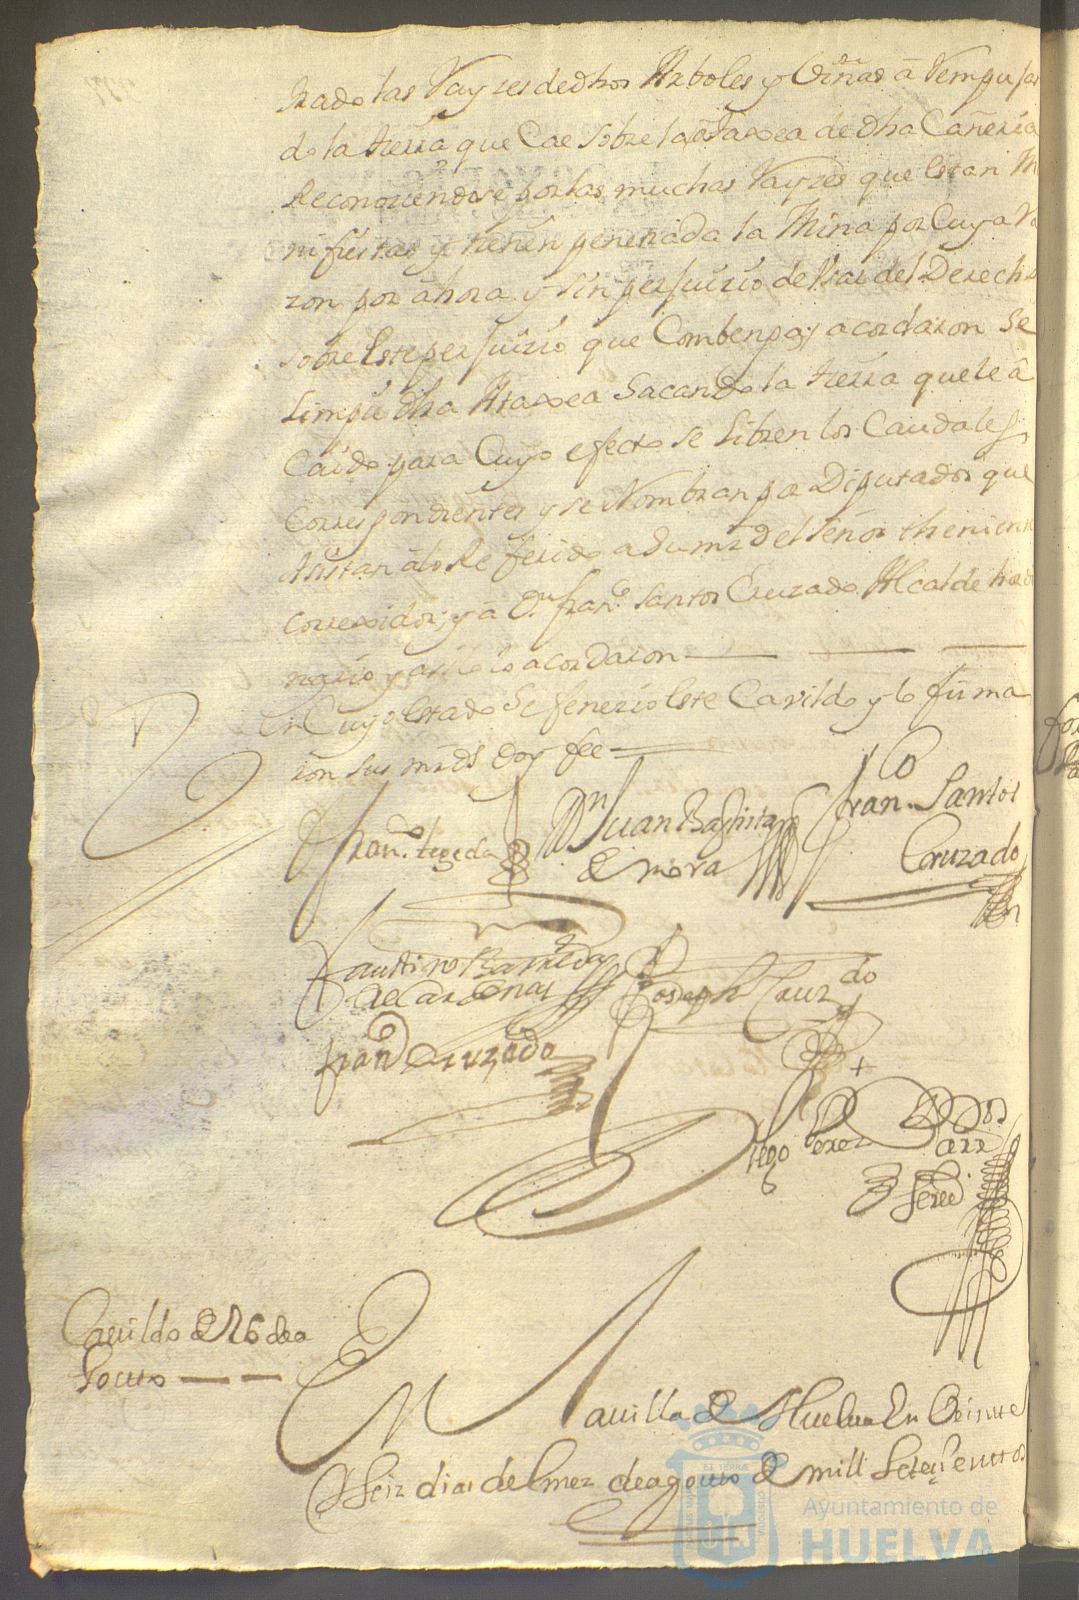 rado las rayzes de dhos Arboles y Viñas a rempujar
do la tierra que Cae sobre la ataxea de dha Cañeria
Reconoziendose por las muchas rayzes que estan M
nifiestas y tienen penetrada la Mina por Cuya Ra
zon por ahora y sin perjuizio de Usar del Derecho
sobre este perjuizio que Combenga; acordaron Se
limpie dha Ataxea Sacando la tierra que le â
Caido para Cuyo efecto se libren los Caudales
Correspondientes y se Nombran por Diputados que
Asistan âlo Referido a su mrd el señor theniente
Correxidor; y â Dn franco Santos Cruzado Alcalde hor
y asi lo acordaron
En Cuyo Estado Se fenezio este Cavildo y lo firma
ron sus mrds Doy fee
Franco tegeda Dn Juan Baptista Franco Santos
de mora Cruzado
Faustino Barreda
de Cardenas Joseph Cruzdo
fran Cruzado
Diego Perez
Cavildo de 26 de a
gosto
En La villa de Huelva En Veinte
y Seis dias del mes de agosto de mill Setezientos
ET TERRAE
Ayuntamiento de
HUELVA